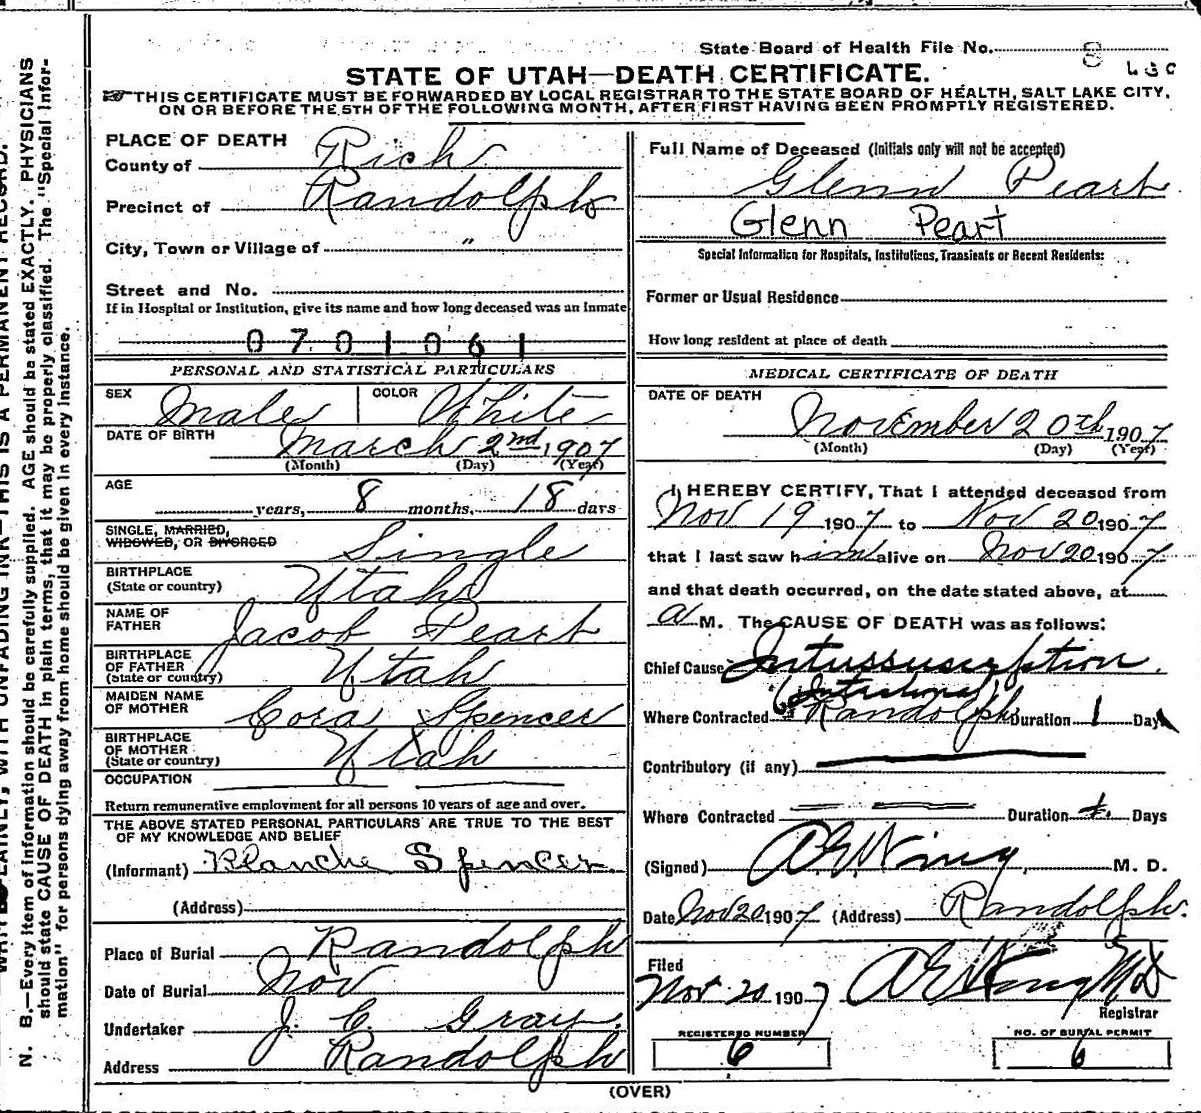 State Board of Health File No. 8
STATE OF UTAH—DEATH CERTIFICATE.
THIS CERTIFICATE MUST BE FORWARDED BY LOCAL REGISTRAR TO THE STATE BOARD OF HEALTH, SALT LAKE CITY,
ON OR BEFORE THE 5TH OF THE FOLLOWING MONTH, AFTER FIRST HAVING BEEN PROMPTLY REGISTERED.
PLACE OF DEATH
County of Rich
Precinct of Randolph
City, Town or Village of "
Street and No.
If in Hospital or Institution, give its name and how long deceased was an Inmate
0701061
PERSONAL AND STATISTICAL PARTICULARS
SEX Male COLOR White
DATE OF BIRTH March 2nd, 1907
(Month) (Day) (Year)
AGE
years, 8 months, 18 days
SINGLE, MARRIED,
WIDOWED, OR DIVORCED Single
BIRTHPLACE
(State or country) Utah
NAME OF
FATHER Jacob Peart
BIRTHPLACE
OF FATHER
(State or country) Utah
MAIDEN NAME
OF MOTHER Cora Spencer
BIRTHPLACE
OF MOTHER
(State or country) Utah
OCCUPATION
Return remunerative employment for all persons 10 years of age and over.
THE ABOVE STATED PERSONAL PARTICULARS ARE TRUE TO THE BEST
OF MY KNOWLEDGE AND BELIEF
(Informant) Blanche Spencer.
(Address)
Place of Burial Randolph
Date of Burial Nov
Undertaker J. C. Gray.
Address Randolph
Full Name of Deceased (Initials only will not be accepted)
Glenn Peart
Glenn Peart
Special Information for Hospitals, Institutions, Transients or Recent Residents:
Former or Usual Residence
How long resident at place of death
MEDICAL CERTIFICATE OF DEATH
DATE OF DEATH
November 20th, 1907
(Month) (Day) (Year)
I HEREBY CERTIFY, That I attended deceased from
Nov 19 1907 to Nov 20 1907
that I last saw him alive on Nov 20 1907
and that death occurred, on the date stated above, at
a M. The CAUSE OF DEATH was as follows:
Chief Cause Intussusception.
Intestinal
Where Contracted Randolph Duration 1 Day
Contributory (if any)
Where Contracted Duration Days
(Signed) M. D.
Date Nov 20 1907 (Address) Randolph.
Filed
Nov. 20 1907 MD
Registrar
REGISTERED NUMBER
6
NO. OF BURIAL PERMIT
6
(OVER)
N. B.—Every item of information should be carefully supplied. AGE should be stated EXACTLY. PHYSICIANS
should state CAUSE OF DEATH in plain terms, that it may be properly classified. The "Special Infor-
mation" for persons dying away from home should be given in every instance.
PLAINLY, WITH UNFADING INK—THIS IS A PERMANENT RECORD.